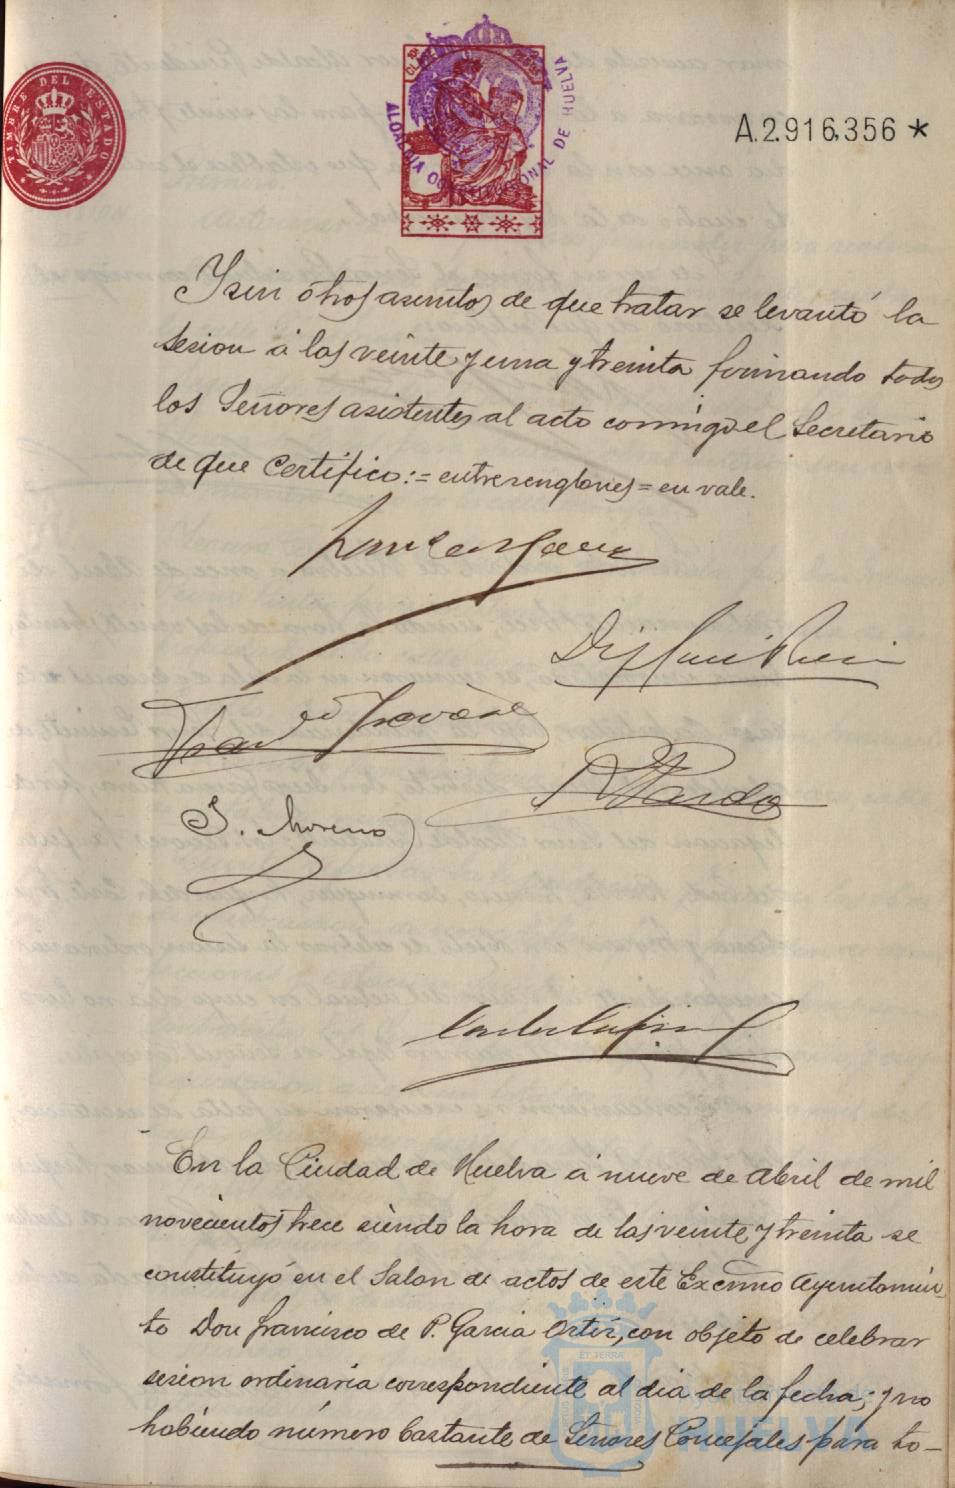 TIMBRE DEL ESTADO
ALCALDIA CONSTITUCIONAL DE HUELVA
A.2.916.356 *
Y sin otros asuntos de que tratar se levantó la
sesion á las veinte y una y treinta firmando todos
los Señores asistentes al acto conmigo el Secretario
de que Certifico:= entrerenglones = en vale.
S. Moreno
Pardo
En la Ciudad de Huelva á nueve de Abril de mil
novecientos trece siendo la hora de las veinte y treinta se
constituyó en el Salon de actos de este Excmo Ayuntamien-
to Don Francisco de P. Garcia Ortiz, con objeto de celebrar
sesion ordinaria correspondiente al dia de la fecha; y no
habiendo número bastante de Señores Concejales para to-
HUELVA